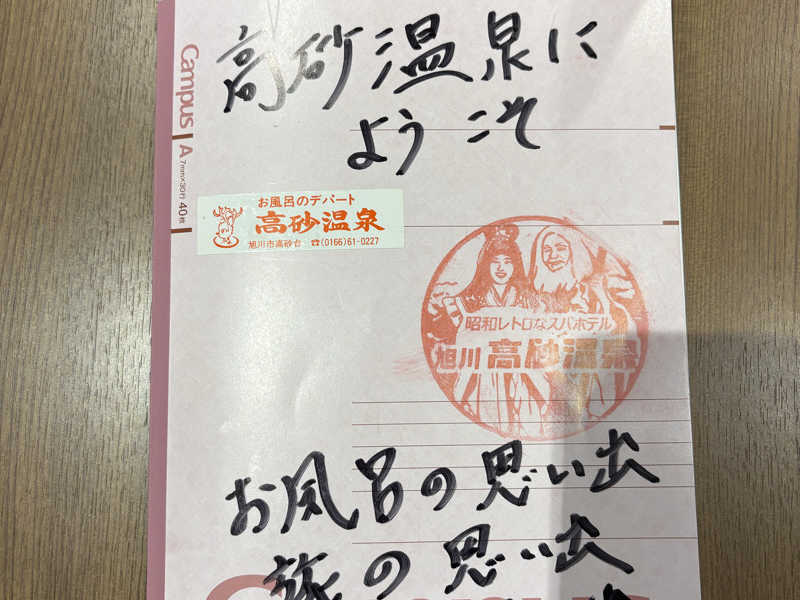 高砂温泉に
ようこそ
Campus
A 7mm×30行 40枚
お風呂のデパート
高砂温泉
旭川市高砂台 ☎(0166)61-0227
昭和レトロなスパホテル
旭川 高砂温泉
お風呂の思い出
旅の思い出